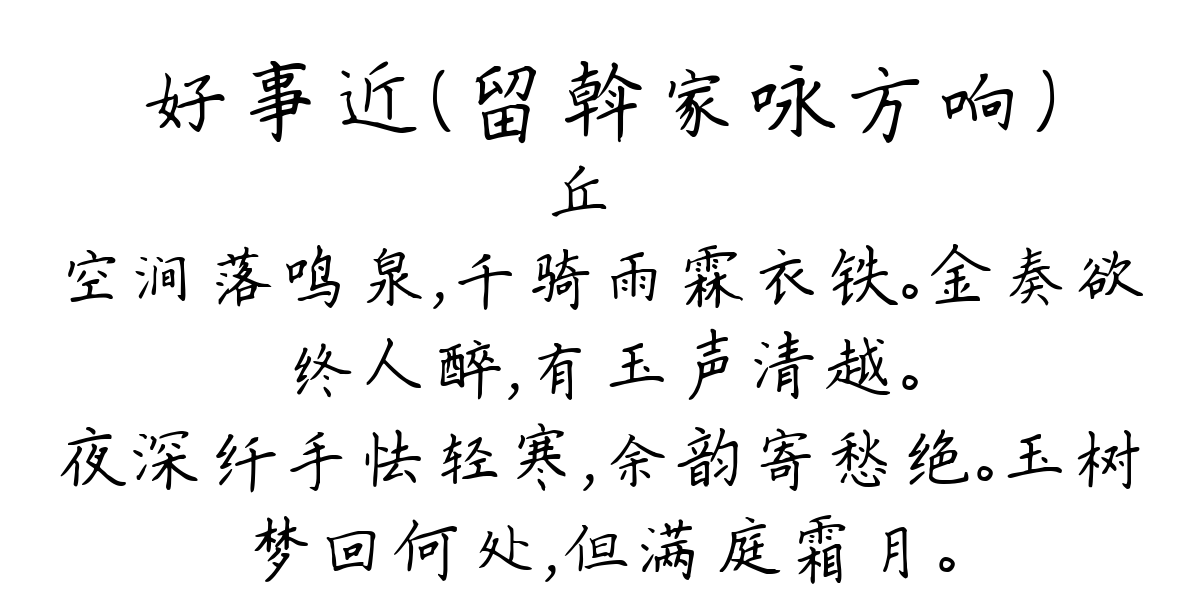 好事近(留斡家咏方响)
丘
空涧落鸣泉,千骑雨霖衣铁。金奏欲
终人醉,有玉声清越。
夜深纤手怯轻寒,余韵寄愁绝。玉树
梦回何处,但满庭霜月。